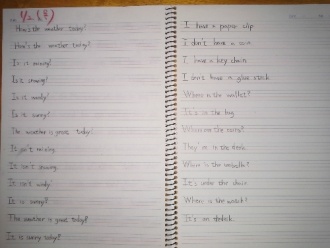 How's the weather today?
How's the weather today?
Is it raining?
Is it snowing?
Is it windy?
Is it sunny?
The weather is great today!
It isn't raining.
It isn't snowing.
It isn't windy.
It is sunny?
The weather is great today?
It is sunny today?
I have a paper clip
I don't have a
I have a key chain
I don't have a glue stick
Where is the wallet?
It's in the bag
Where are the coins?
They're in the desk
Where is the umbrella?
It's under the chair
Where is the watch?
It's on desk.